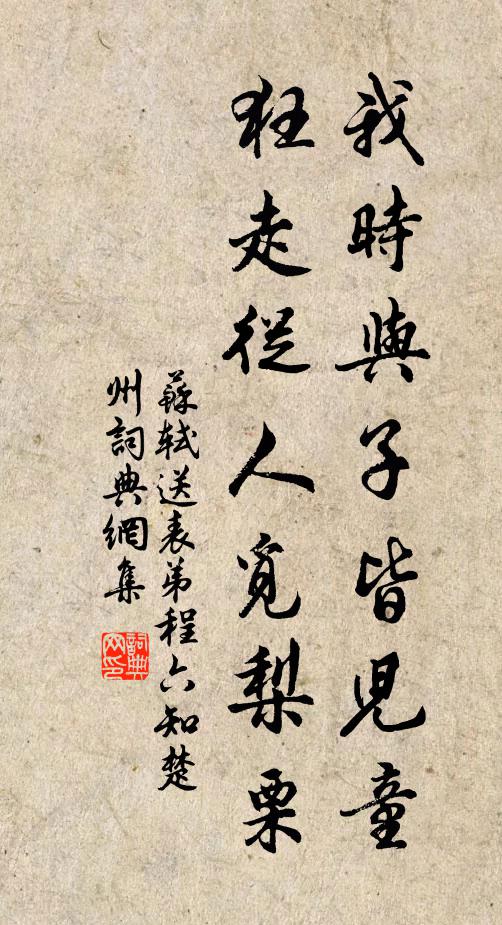 我時與子皆児童
狂走從人覓梨栗
蘇軾送表弟程六知楚
州詞典網集
詞典
网印